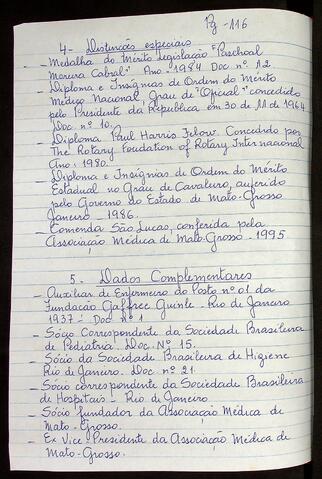 Pg - 116
4 - Distinções especiais
_ Medalha do Mérito Legislação "Paschoal
Moreira Cabral". Ano - 1984 Doc nº 12
_ Diploma e Insígnias de Ordem do Mérito
Médico Nacional Grau de "Oficial" concedido
pelo Presidente da República em 30 de 11 de 1964
Doc nº 10.
_ Diploma Paul Harris Felow. Concedido por
The Rotary Foudation of Rotary Internacional
Ano: 1980.
_ Diploma e Insígnias de Ordem do Mérito
Estadual no Grau de Cavaleiro, auferido
pelo Governo do Estado de Mato-Grosso
Janeiro - 1986.
_ Comenda São Lucas, conferida pela
Associação Médica de Mato-Grosso - 1995
5. Dados Complementares
_ Auxiliar de Enfermeiro do Posto nº 01 da
Fundação Gaffreé Guinle - Rio de Janeiro
1937 - Doc nº 1
_ Sócio Correspondente da Sociedade Brasileira
de Pediatria. Doc. Nº 15.
_ Sócio da Sociedade Brasileira de Higiene
Rio de Janeiro. Doc. nº 21.
_ Sócio correspondente da Sociedade Brasileira
de Hospitais - Rio de Janeiro
_ Sócio fundador da Associação Médica de
Mato-Grosso.
_ Ex Vice-Presidente da Associação Médica de
Mato-Grosso.